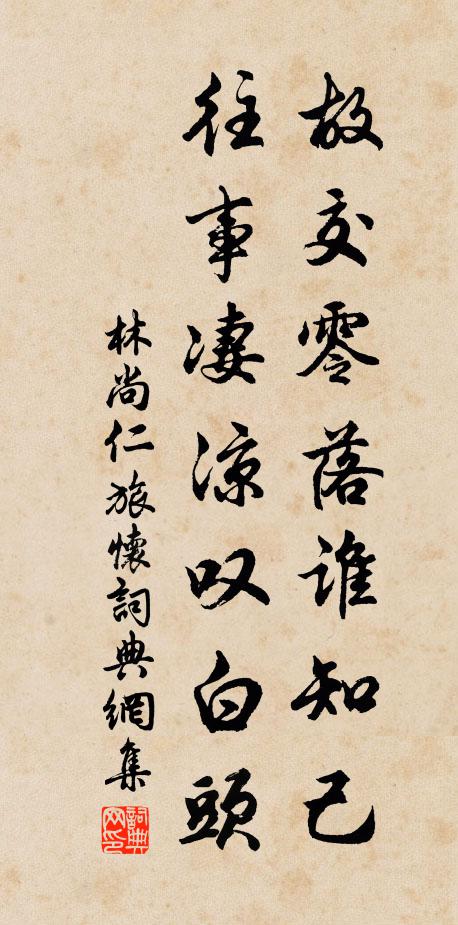 故交零落谁知己
往事凄涼叹白頭
林尚仁旅懷詞典網集
詞典
网印